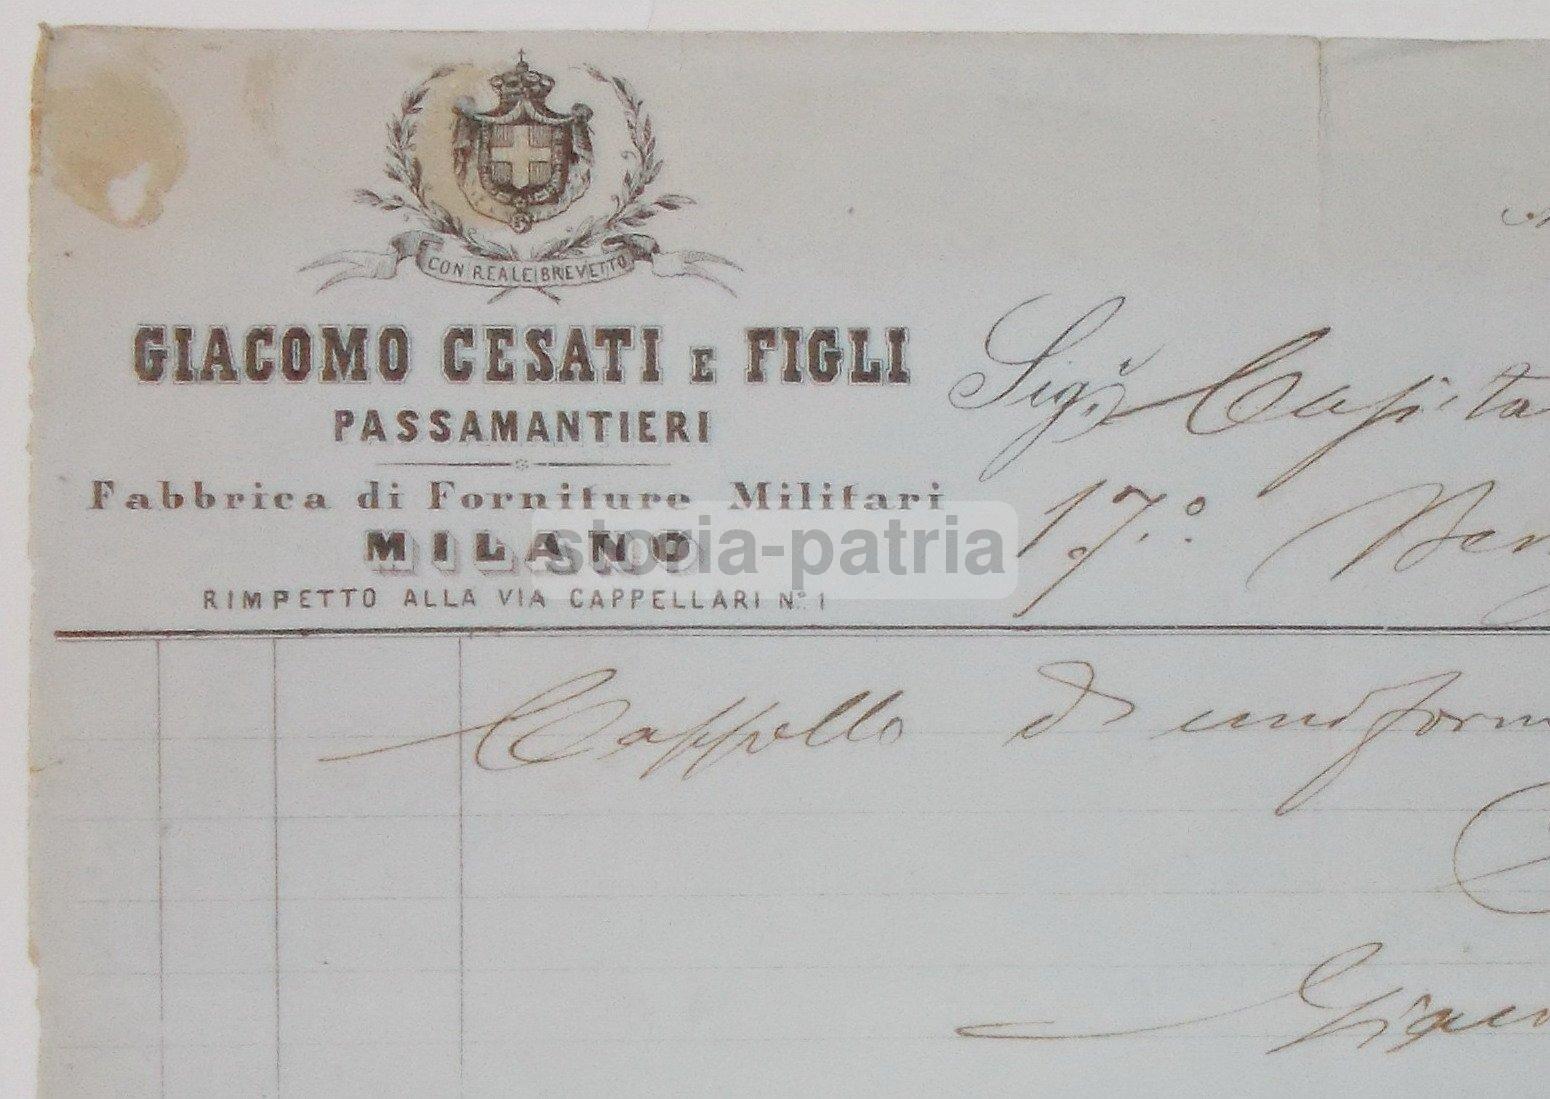 CON REALE BREVETTO
GIACOMO CESATI E FIGLI
PASSAMANTIERI
Fabbrica di Forniture Militari
MILANO
RIMPETTO ALLA VIA CAPPELLARI N.º 1
storia-patria
Sigr. Capita
17.º
Cappello di uniform
Giaco